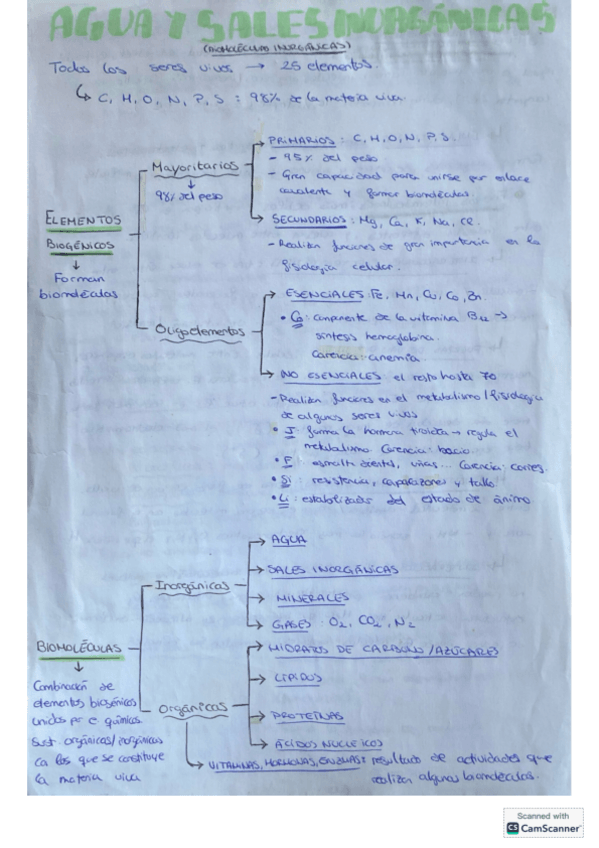 AGUA Y SALES INORGÁNICAS
(BIOMOLÉCULAS INORGÁNICAS)
Todos los seres vivos → 25 elementos.
↳ C, H, O, N, P, S : 98% de la materia viva.
ELEMENTOS
BIOGÉNICOS
↓
Forman
biomoléculas
Mayoritarios
↓
98% del peso
PRIMARIOS : C, H, O, N, P, S.
- 95% del peso
- Gran capacidad para unirse por enlace
covalente y formar biomoléculas.
SECUNDARIOS : Mg, Ca, K, Na, Cl.
- Realizan funciones de gran importancia en la
fisiología celular.
Oligoelementos
ESENCIALES: Fe, Mn, Cu, Co, Zn.
• Co: componente de la vitamina B12 →
síntesis hemoglobina.
Carencia: anemia.
NO ESENCIALES : el resto hasta 70
- Realizan funciones en el metabolismo/fisiología
de algunos seres vivos
• I: forma la hormona tiroidea → regula el
metabolismo. Carencia: bocio.
• F: esmalte dental, uñas... Carencia: caries.
• Si: resistencia, caparazones y tallo
• Li: estabilizador del estado de ánimo
BIOMOLÉCULAS
↓
Combinación de
elementos biogénicos
unidos por e químicos.
Sust. orgánicas/inorgánicas
Ca los que se constituye
la materia viva
Inorgánicas
AGUA
SALES INORGÁNICAS
MINERALES
GASES : O2, CO2, N2
Orgánicas
HIDRATOS DE CARBONO/AZÚCARES
LÍPIDOS
PROTEÍNAS
ÁCIDOS NUCLEICOS
VITAMINAS, HORMONAS, ENZIMAS: resultado de actividades que
realizan algunas biomoléculas.
Scanned with
CS CamScanner